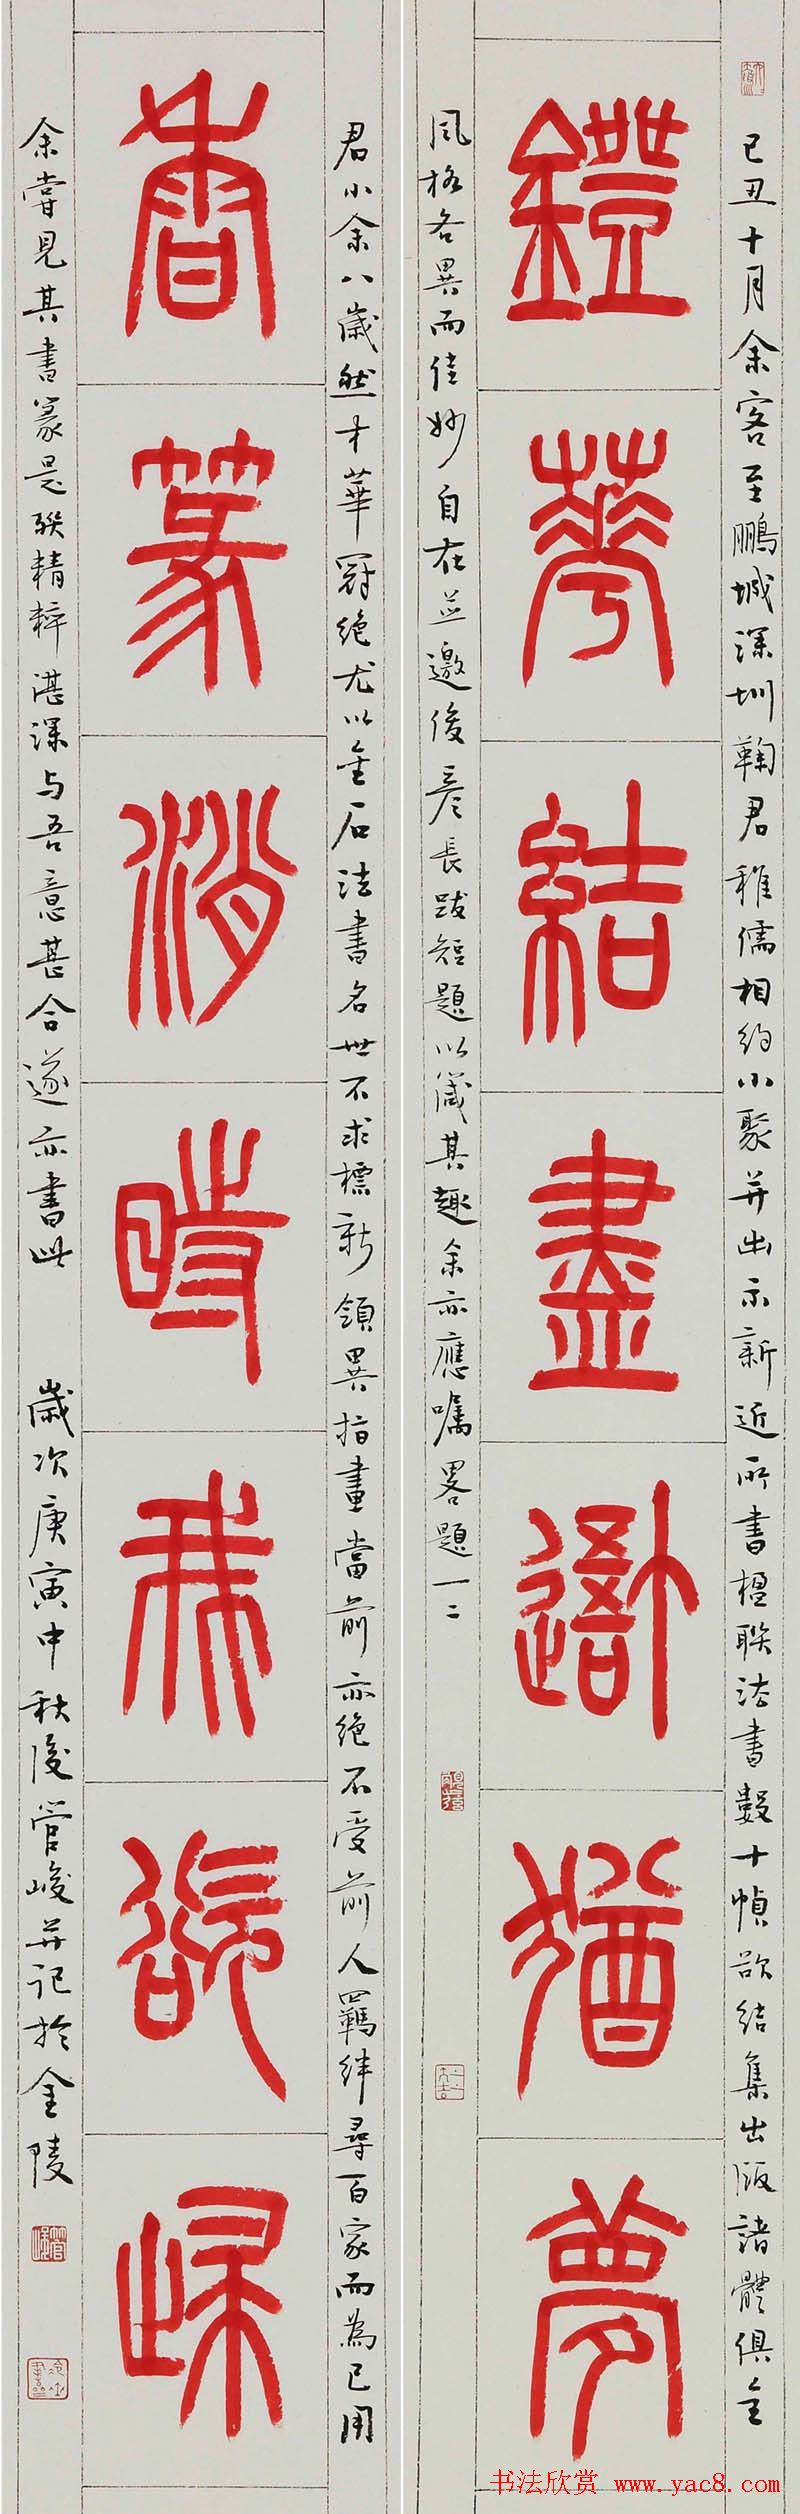 鐙華結盡吾猶夢
香篆消時我欲歸
己丑十月余客至鵬城深圳鞠君稚儒相約小聚并出示新近所書楹联法書數十幀欲结集出版諸體俱全
風格各異而佳妙自在并邀俊彦長跋短題以箴其趣余亦應嘱畧題一二
君小余八歲然才華冠绝尤以金石法書名世不求標新領異指畫當前亦绝不受前人羈绊尋百家而為己用
余嘗見其書篆是联精粹湛深与吾意甚合遂亦書此 歲次庚寅中秋後管峻并记於金陵
书法欣赏 www.yac8.com